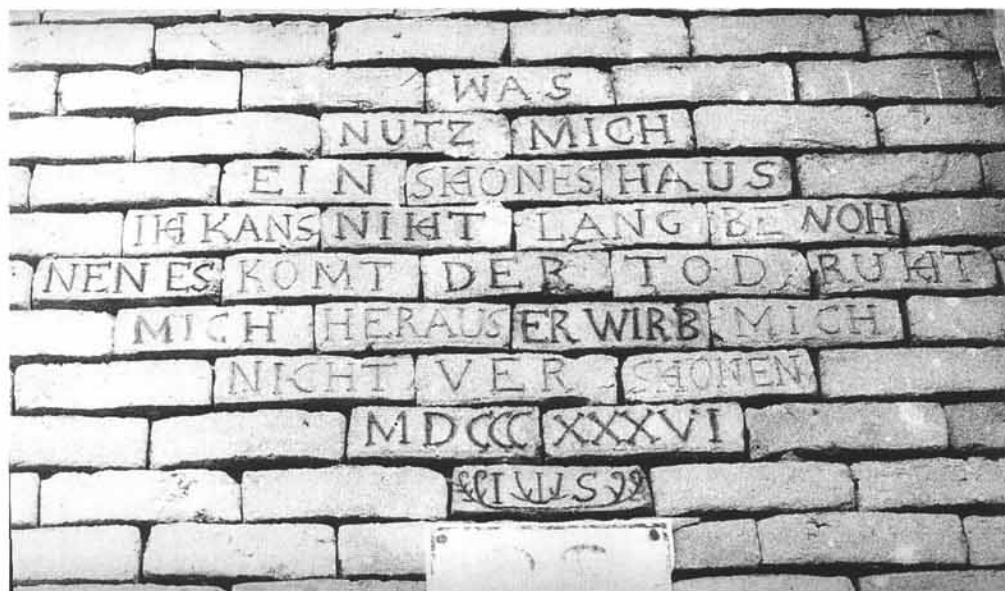 WAS
NUTZ MICH
EIN SCHONES HAUS
ICH KANS NICHT LANG BE NOH
NEN ES KOMT DER TOD RUCHT
MICH HERAUS ER WIRB MICH
NICHT VER SCHONEN
MDCCC XXXVI
I W S